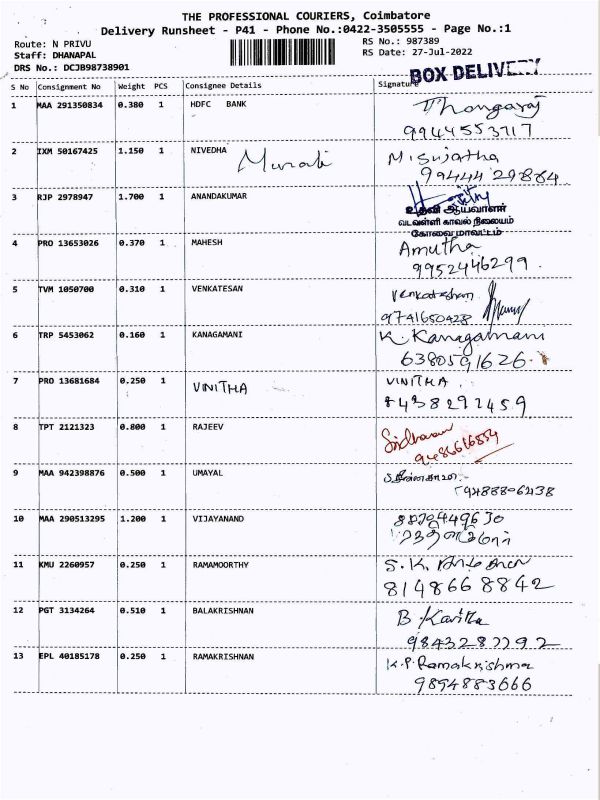 THE PROFESSIONAL COURIERS, Coimbatore
Delivery Runsheet - P41 - Phone No.:0422-3505555 - Page No.:1
Route: N PRIVU RS No.: 987389
Staff: DHANAPAL RS Date: 27-Jul-2022
DRS No.: DCJB98738901
BOX DELIVERY
S No Consignment No Weight PCS Consignee Details Signature
1 MAA 291350834 0.380 1 HDFC BANK Thangaraj
9944553717
2 IXM 50167425 1.150 1 NIVEDHA Murali M. Sujatha
9944429884
3 RJP 2978947 1.700 1 ANANDAKUMAR
உதவி ஆய்வாளர்
வடவள்ளி காவல் நிலையம்
கோவை மாவட்டம்
4 PRO 13653026 0.370 1 MAHESH Amutha
9952446299.
5 TVM 1050700 0.310 1 VENKATESAN Venkateshan
9741650428
6 TRP 5453062 0.160 1 KANAGAMANI K. Kanagamani
6380591626.
7 PRO 13681684 0.250 1 VINITHA VINITHA
8438292459
8 TPT 2121323 0.800 1 RAJEEV Sridharan
9486616854
9 MAA 942398876 0.500 1 UMAYAL
9488806438
10 MAA 290513295 1.200 1 VIJAYANAND
11 KMU 2260957 0.250 1 RAMAMOORTHY S.K.
8148668842
12 PGT 3134264 0.510 1 BALAKRISHNAN B. Kavitha
9843287792
13 EPL 40185178 0.250 1 RAMAKRISHNAN K.P. Ramakrishna
9894883666